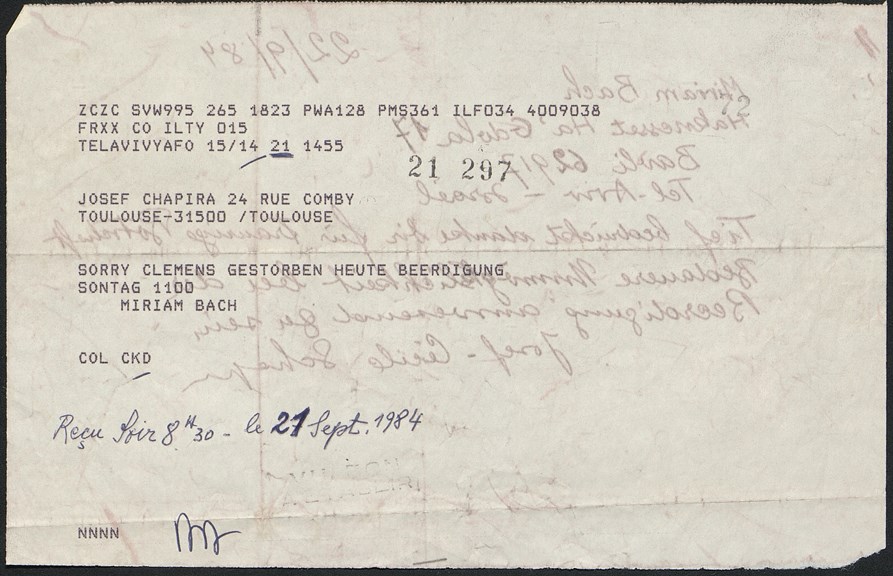 22/9/84
Miriam Bach
ZCZC SVW995 265 1823 PWA128 PMS361 ILF034 4009038
Haknesset Ha Gdola 17
FRXX CO ILTY 015
TELAVIVYAFO 15/14 21 1455
Bavli 62917
21 297
Tel-Aviv - Israel
JOSEF CHAPIRA 24 RUE COMBY
TOULOUSE-31500 /TOULOUSE
Tief bedrückt danke dir für traurige Botschaft
SORRY CLEMENS GESTORBEN HEUTE BEERDIGUNG
Bedauere Unmöglichkeit bei der
SONTAG 1100
MIRIAM BACH
Beerdigung anwesend zu sein,
Josef - Cécile
COL CKD
Reçu Soir 8H30 - le 21 Sept. 1984
NNNN